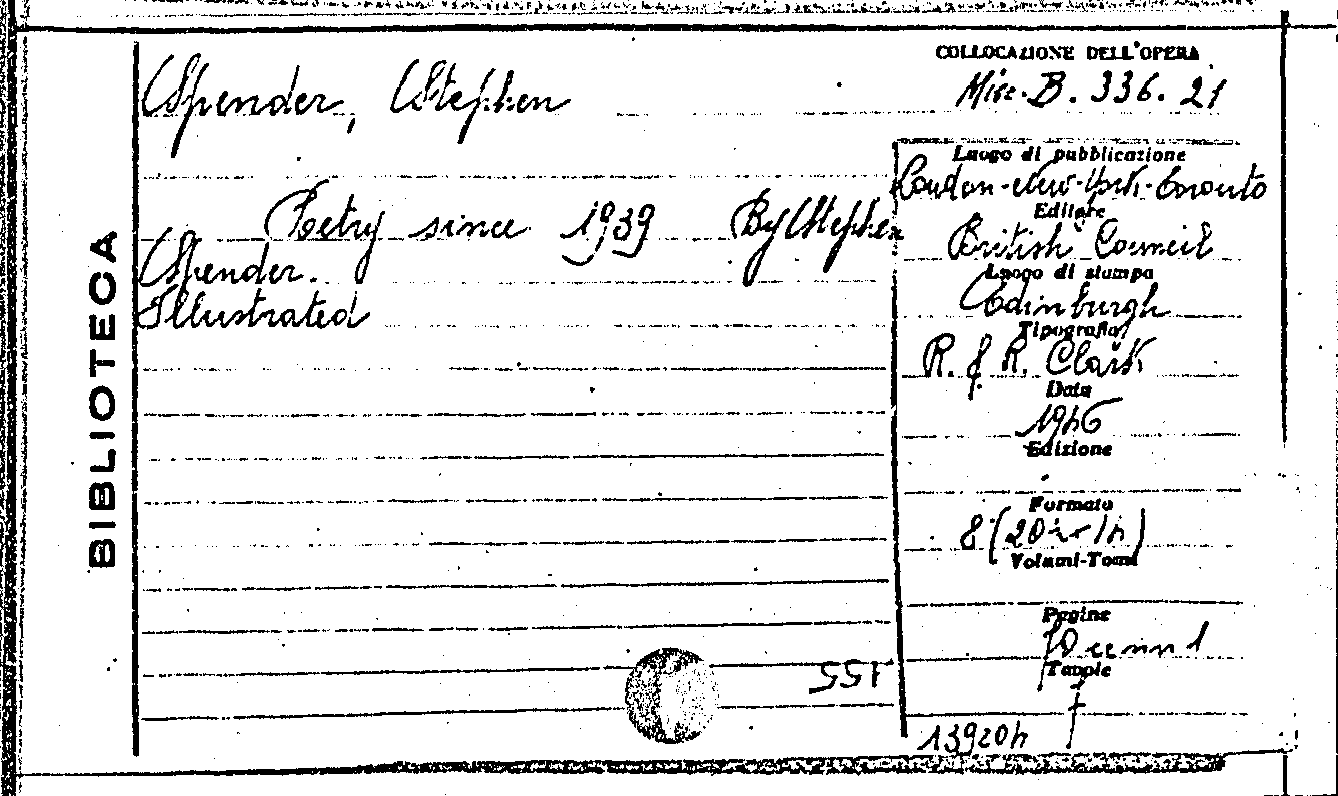 COLLOCAZIONE DELL'OPERA
Misc. B. 336. 21
Spender, Stephen
Luogo di pubblicazione
London-New-York-Toronto
Poetry since 1939 By Stephen
Editore
British Council
Spender.
Luogo di stampa
Illustrated
Edinburgh
Tipografia
R. & R. Clark
Data
1946
Edizione
Formato
8° (20
Volumi-Tomi
Pagine
Tavole
551
139204
BIBLIOTECA